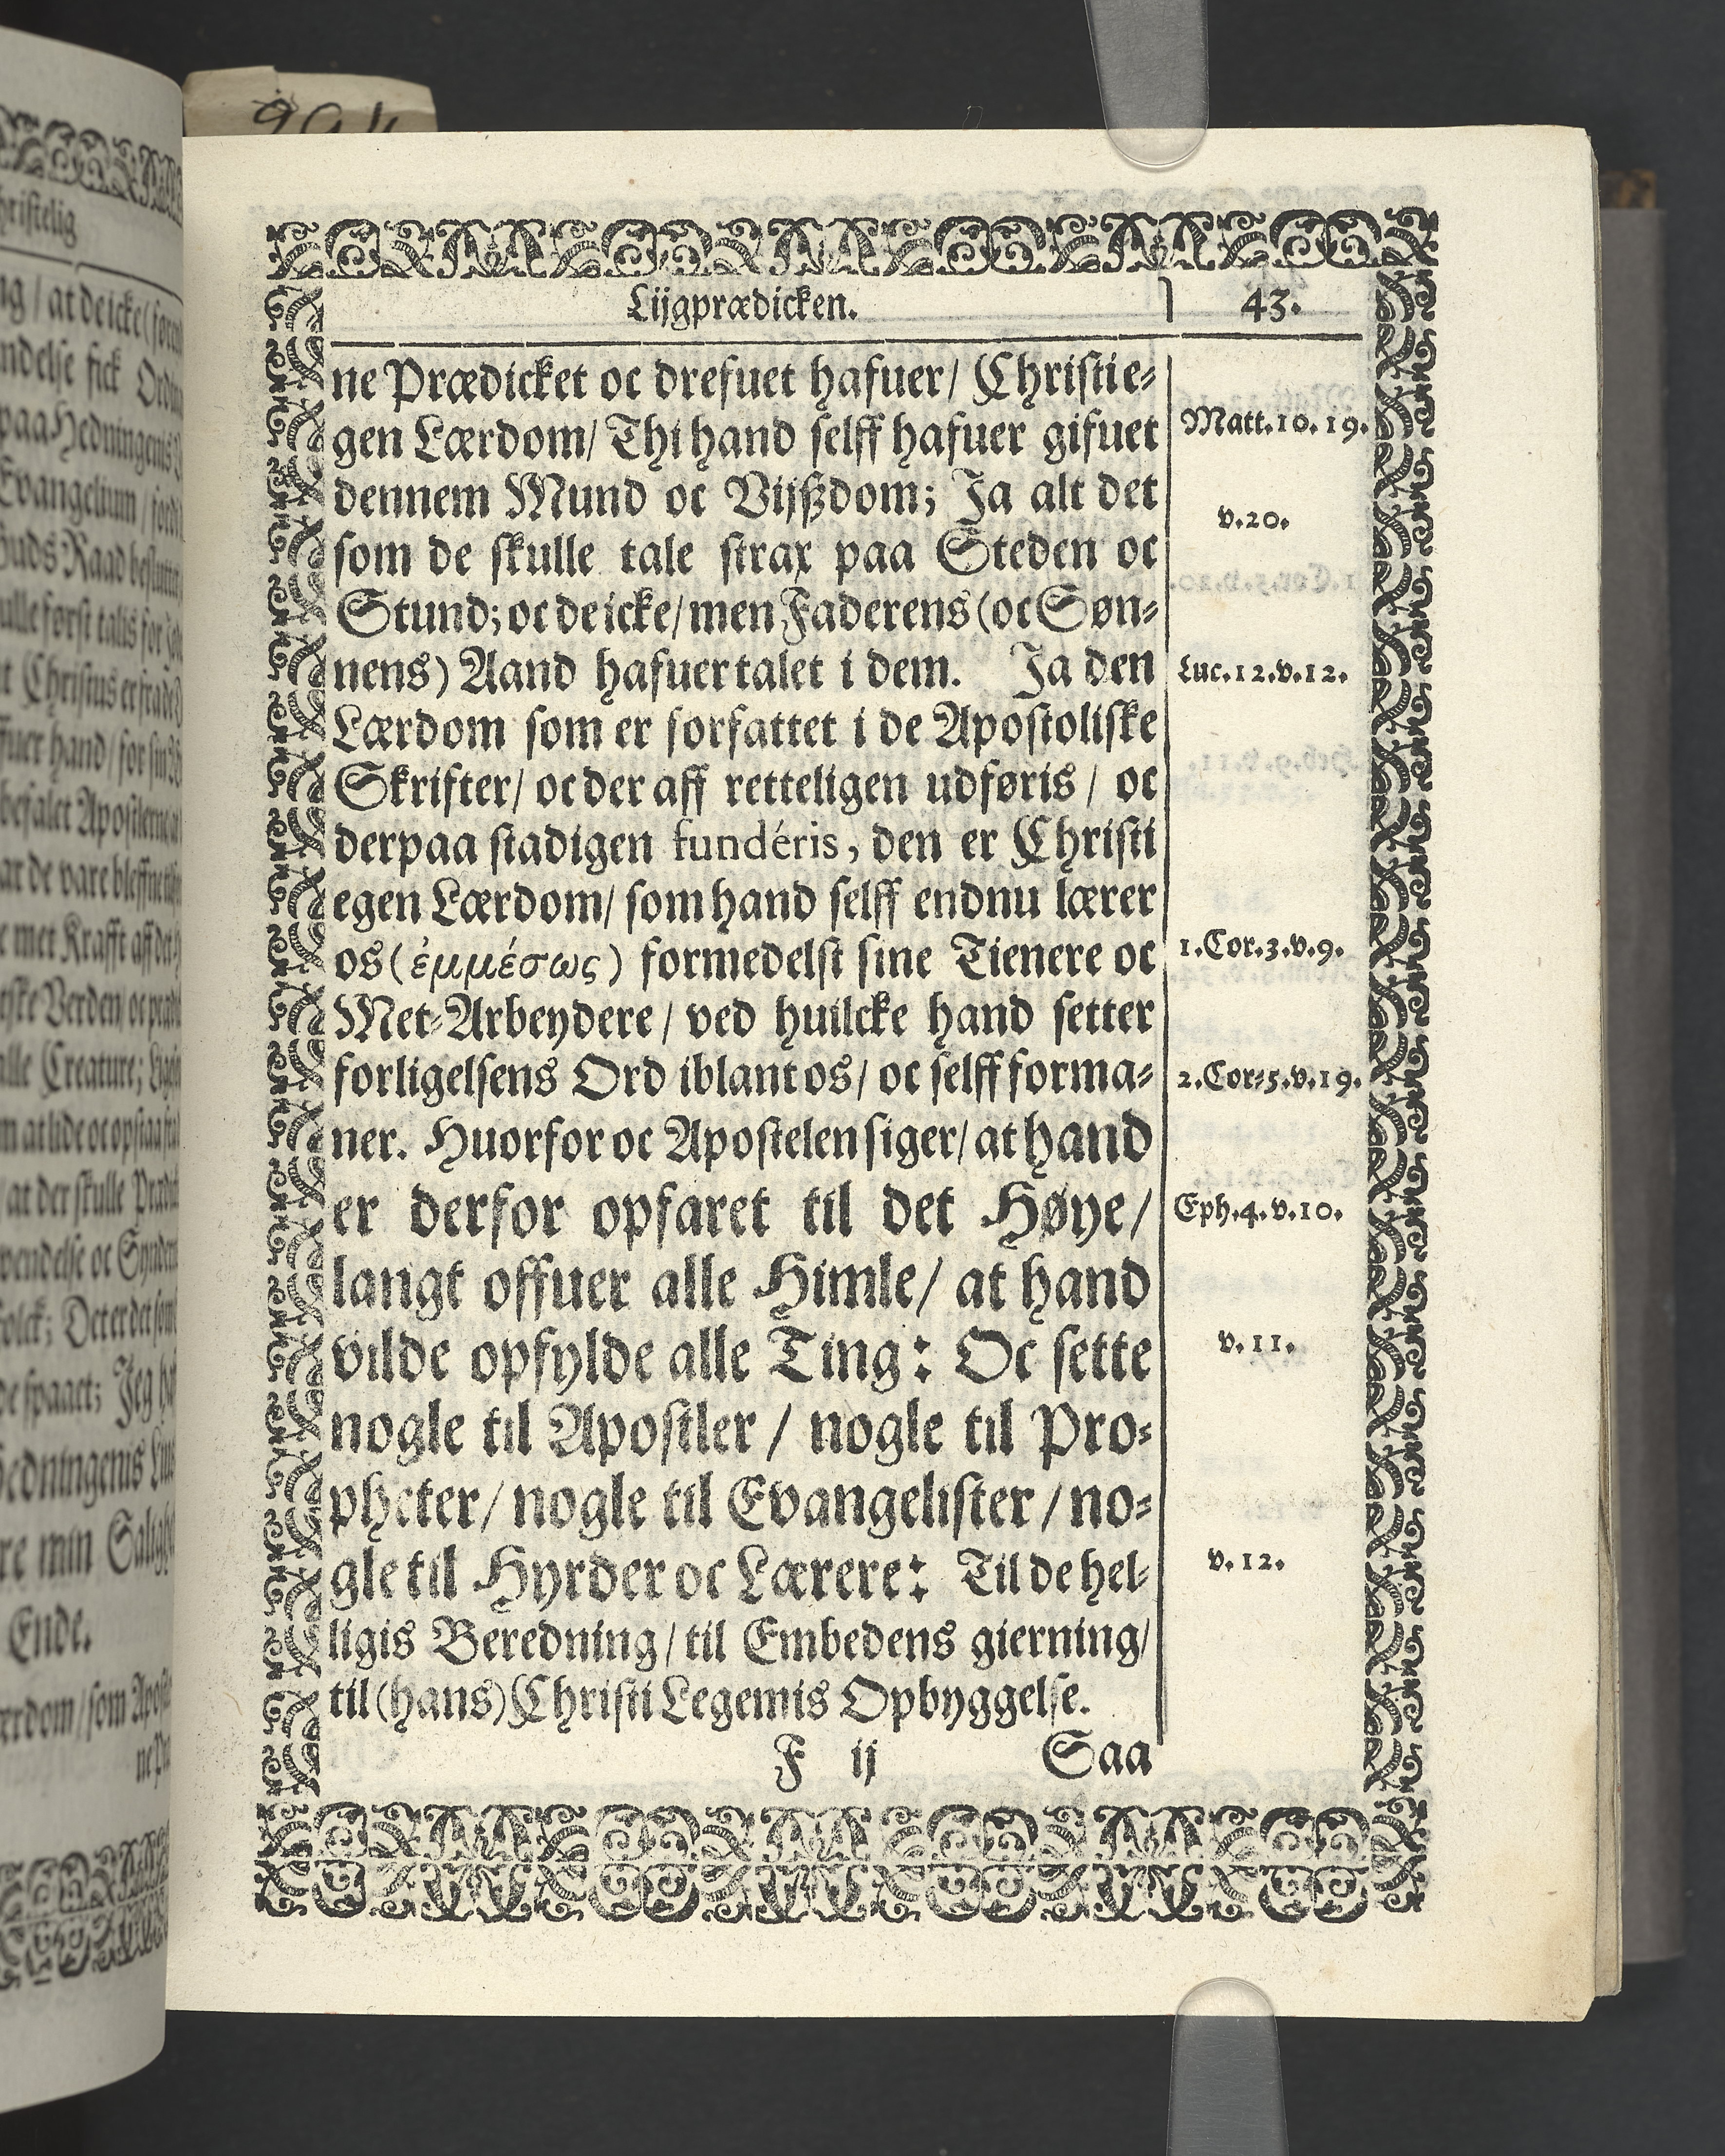 Lijgprædicken.
43.
ne Prædicket oc drefuet hafuer/ Christie=
gen Lærdom/ Thi hand selff hafuer gifuet
dennem Mund oc Vijßdom; Ja alt det
som de skulle tale strax paa Steden oc
Stund; oc de icke/ men Faderens (oc Søn=
nens) Aand hafuer talet i dem. Ja den
Lærdom som er forfattet i de Apostoliske
Skrifter/ oc der aff retteligen udføris / oc
derpaa stadigen fundéris, den er Christi
egen Lærdom/ som hand selff endnu lærer
os (ἐμμέσως) formedelst sine Tienere oc
Met=Arbeydere / ved huilcke hand setter
forligelsens Ord iblant os/ oc selff forma=
ner. Huorfor oc Apostelen siger/ at hand
er derfor opfaret til det Høye/
langt offuer alle Himle/ at hand
vilde opfylde alle Ting: Oc sette
nogle til Apostler / nogle til Pro=
pheter/ nogle til Evangelister / no=
gle til Hyrder oc Lærere: Til de hel=
ligis Beredning / til Embedens gierning/
til (hans) Christi Legemis Opbyggelse.
F ij
Saa
Matt.10.19.
v.20.
Luc.12.v.12.
1.Cor.3.v.9.
2.Cor=5.v.19.
Eph.4.v.10.
v.11.
v.12.